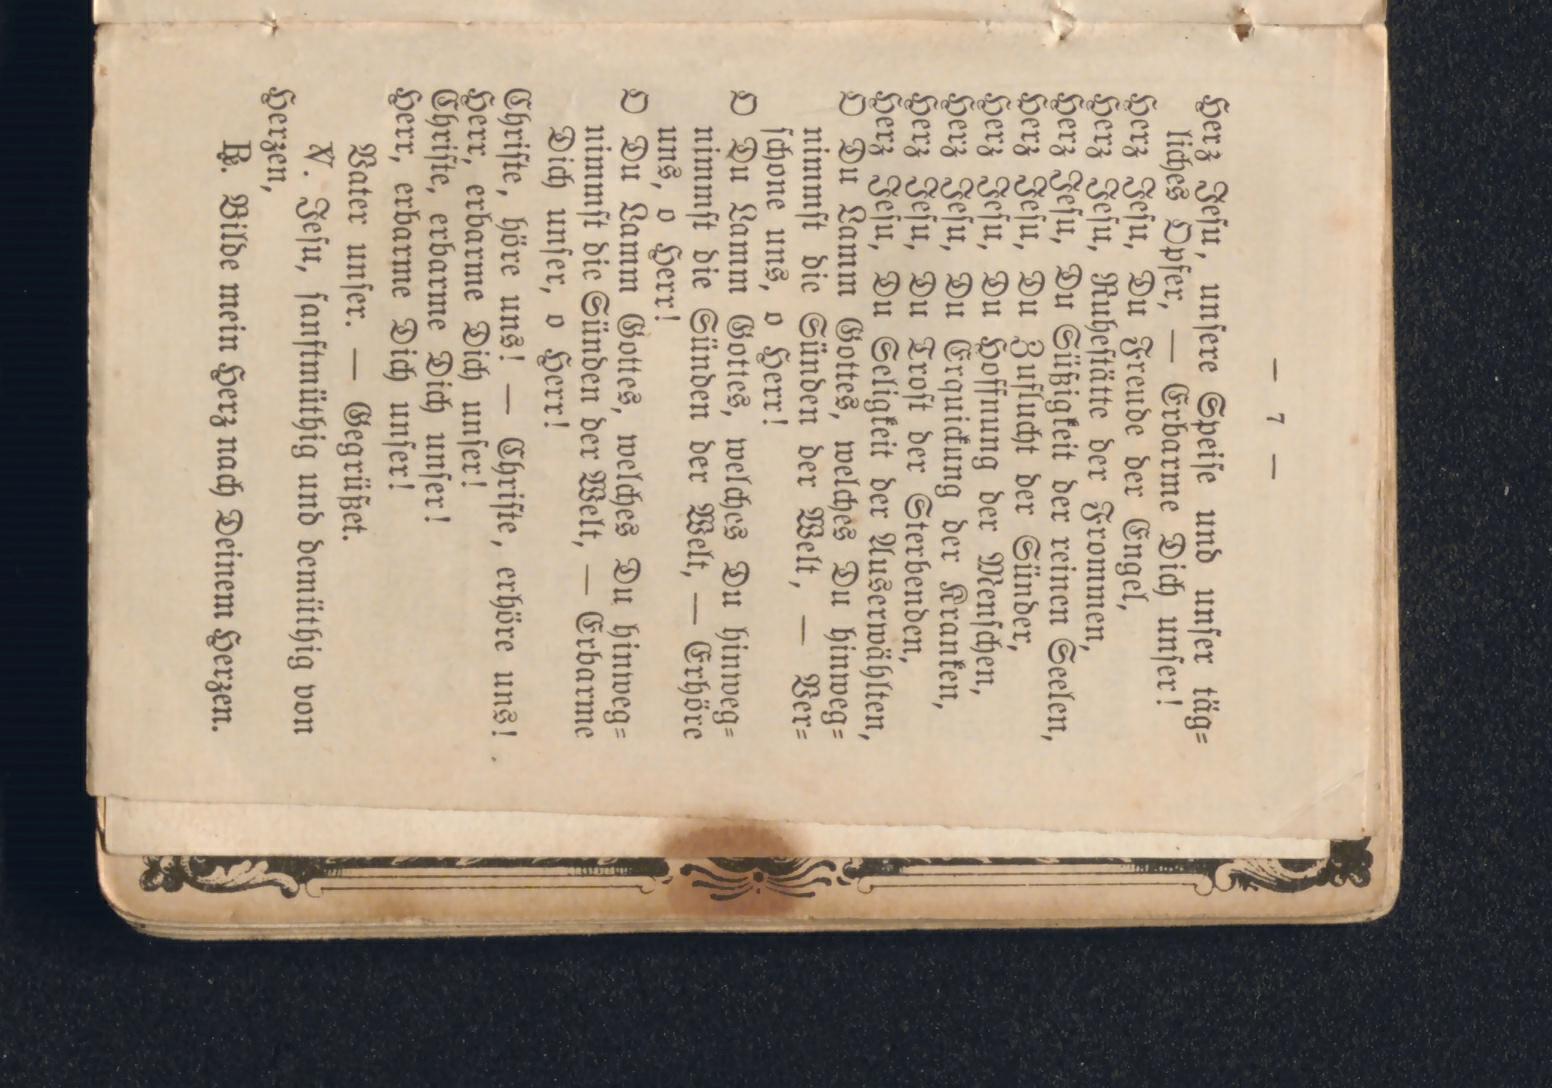 — 7 —
Herz Jesu, unsere Speise und unser täg=
liches Opfer, — Erbarme Dich unser!
Herz Jesu, Du Freude der Engel,
Herz Jesu, Ruhestätte der Frommen,
Herz Jesu, Du Süßigkeit der reinen Seelen,
Herz Jesu, Du Zuflucht der Sünder,
Herz Jesu, Du Hoffnung der Menschen,
Herz Jesu, Du Erquickung der Kranken,
Herz Jesu, Du Trost der Sterbenden,
Herz Jesu, Du Seligkeit der Auserwählten,
O Du Lamm Gottes, welches Du hinweg=
nimmst die Sünden der Welt, — Ver=
schone uns, o Herr!
O Du Lamm Gottes, welches Du hinweg=
nimmst die Sünden der Welt, — Erhöre
uns, o Herr!
O Du Lamm Gottes, welches Du hinweg=
nimmst die Sünden der Welt, — Erbarme
Dich unser, o Herr!
Christe, höre uns! — Christe, erhöre uns!
Herr, erbarme Dich unser!
Christe, erbarme Dich unser!
Herr, erbarme Dich unser!
Vater unser. — Gegrüßet.
℣. Jesu, sanftmüthig und demüthig von
Herzen,
℟. Bilde mein Herz nach Deinem Herzen.